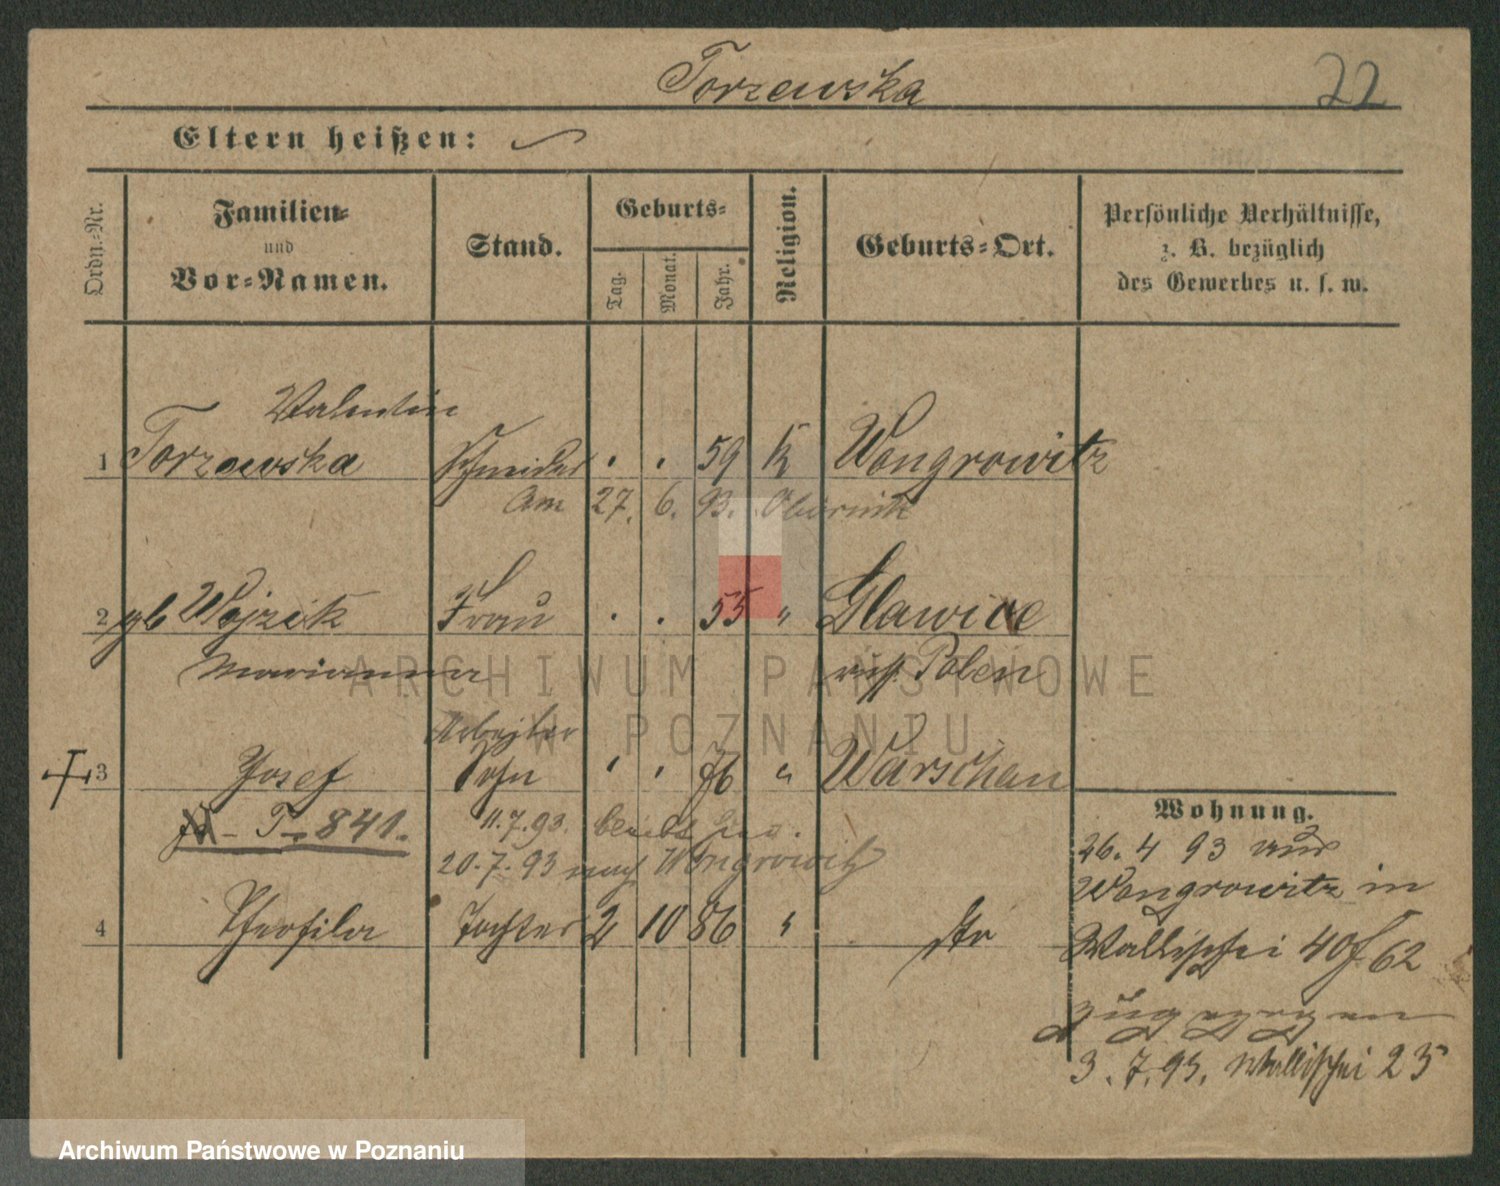 Torzewska
22
Eltern heißen:
Ordn.-Nr.
Familien-
und
Vor-Namen.
Stand.
Geburts-
Tag.
Monat.
Jahr.
Religion.
Geburts-Ort.
Persönliche Verhältnisse,
z. B. bezüglich
des Gewerbes u. s. w.
Valentin
1 Torzewska Schneider . . 59 K Wongrowitz
Am 27. 6. 93. Obornik
2 gb Wojzik Frau . . 55 " Slawice
Marianna russ. Polen
Arbeiter
3 Josef Sohn . . 76 " Warschau
T. 841.
11.7.93. bleibt hier.
20.7.93 nach Wongrowitz
4 Theofila Tochter 2 10 86 "
Wohnung.
26. 4 93 aus
Wongrowitz in
Wallischei 40 f 62
zugezogen
3.7.93. Wallischei 23
ARCHIWUM PAŃSTWOWE
W POZNANIU
Archiwum Państwowe w Poznaniu